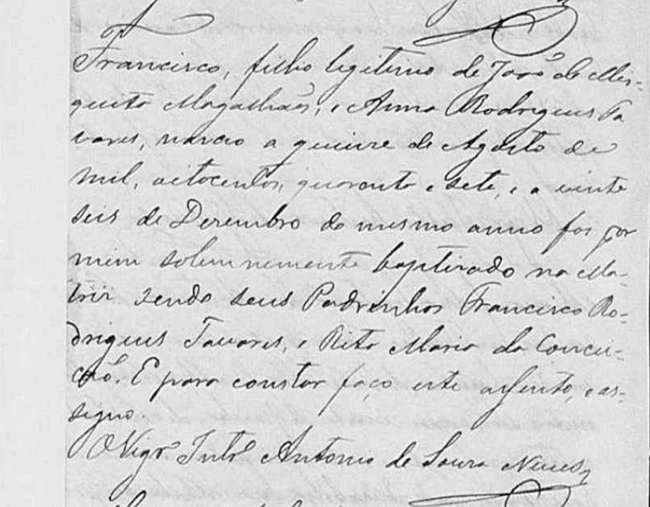 Francisco, filho legitimo de João de Mes-
quita Magalhães, e Anna Rodrigues Ta
vares, nasceo a quinze de Agosto de
mil, oitocentos, quarenta e sete, e a vinte
seis de Dezembro do mesmo anno foi por
mim solemnemente baptizado na Ma-
triz sendo seus Padrinhos Francisco Ro-
drigues Tavares, e Rita Maria da Concei-
ção. E para constar faço este assento, e as-
signo.
O Vigrº Antonio de Souza Neves